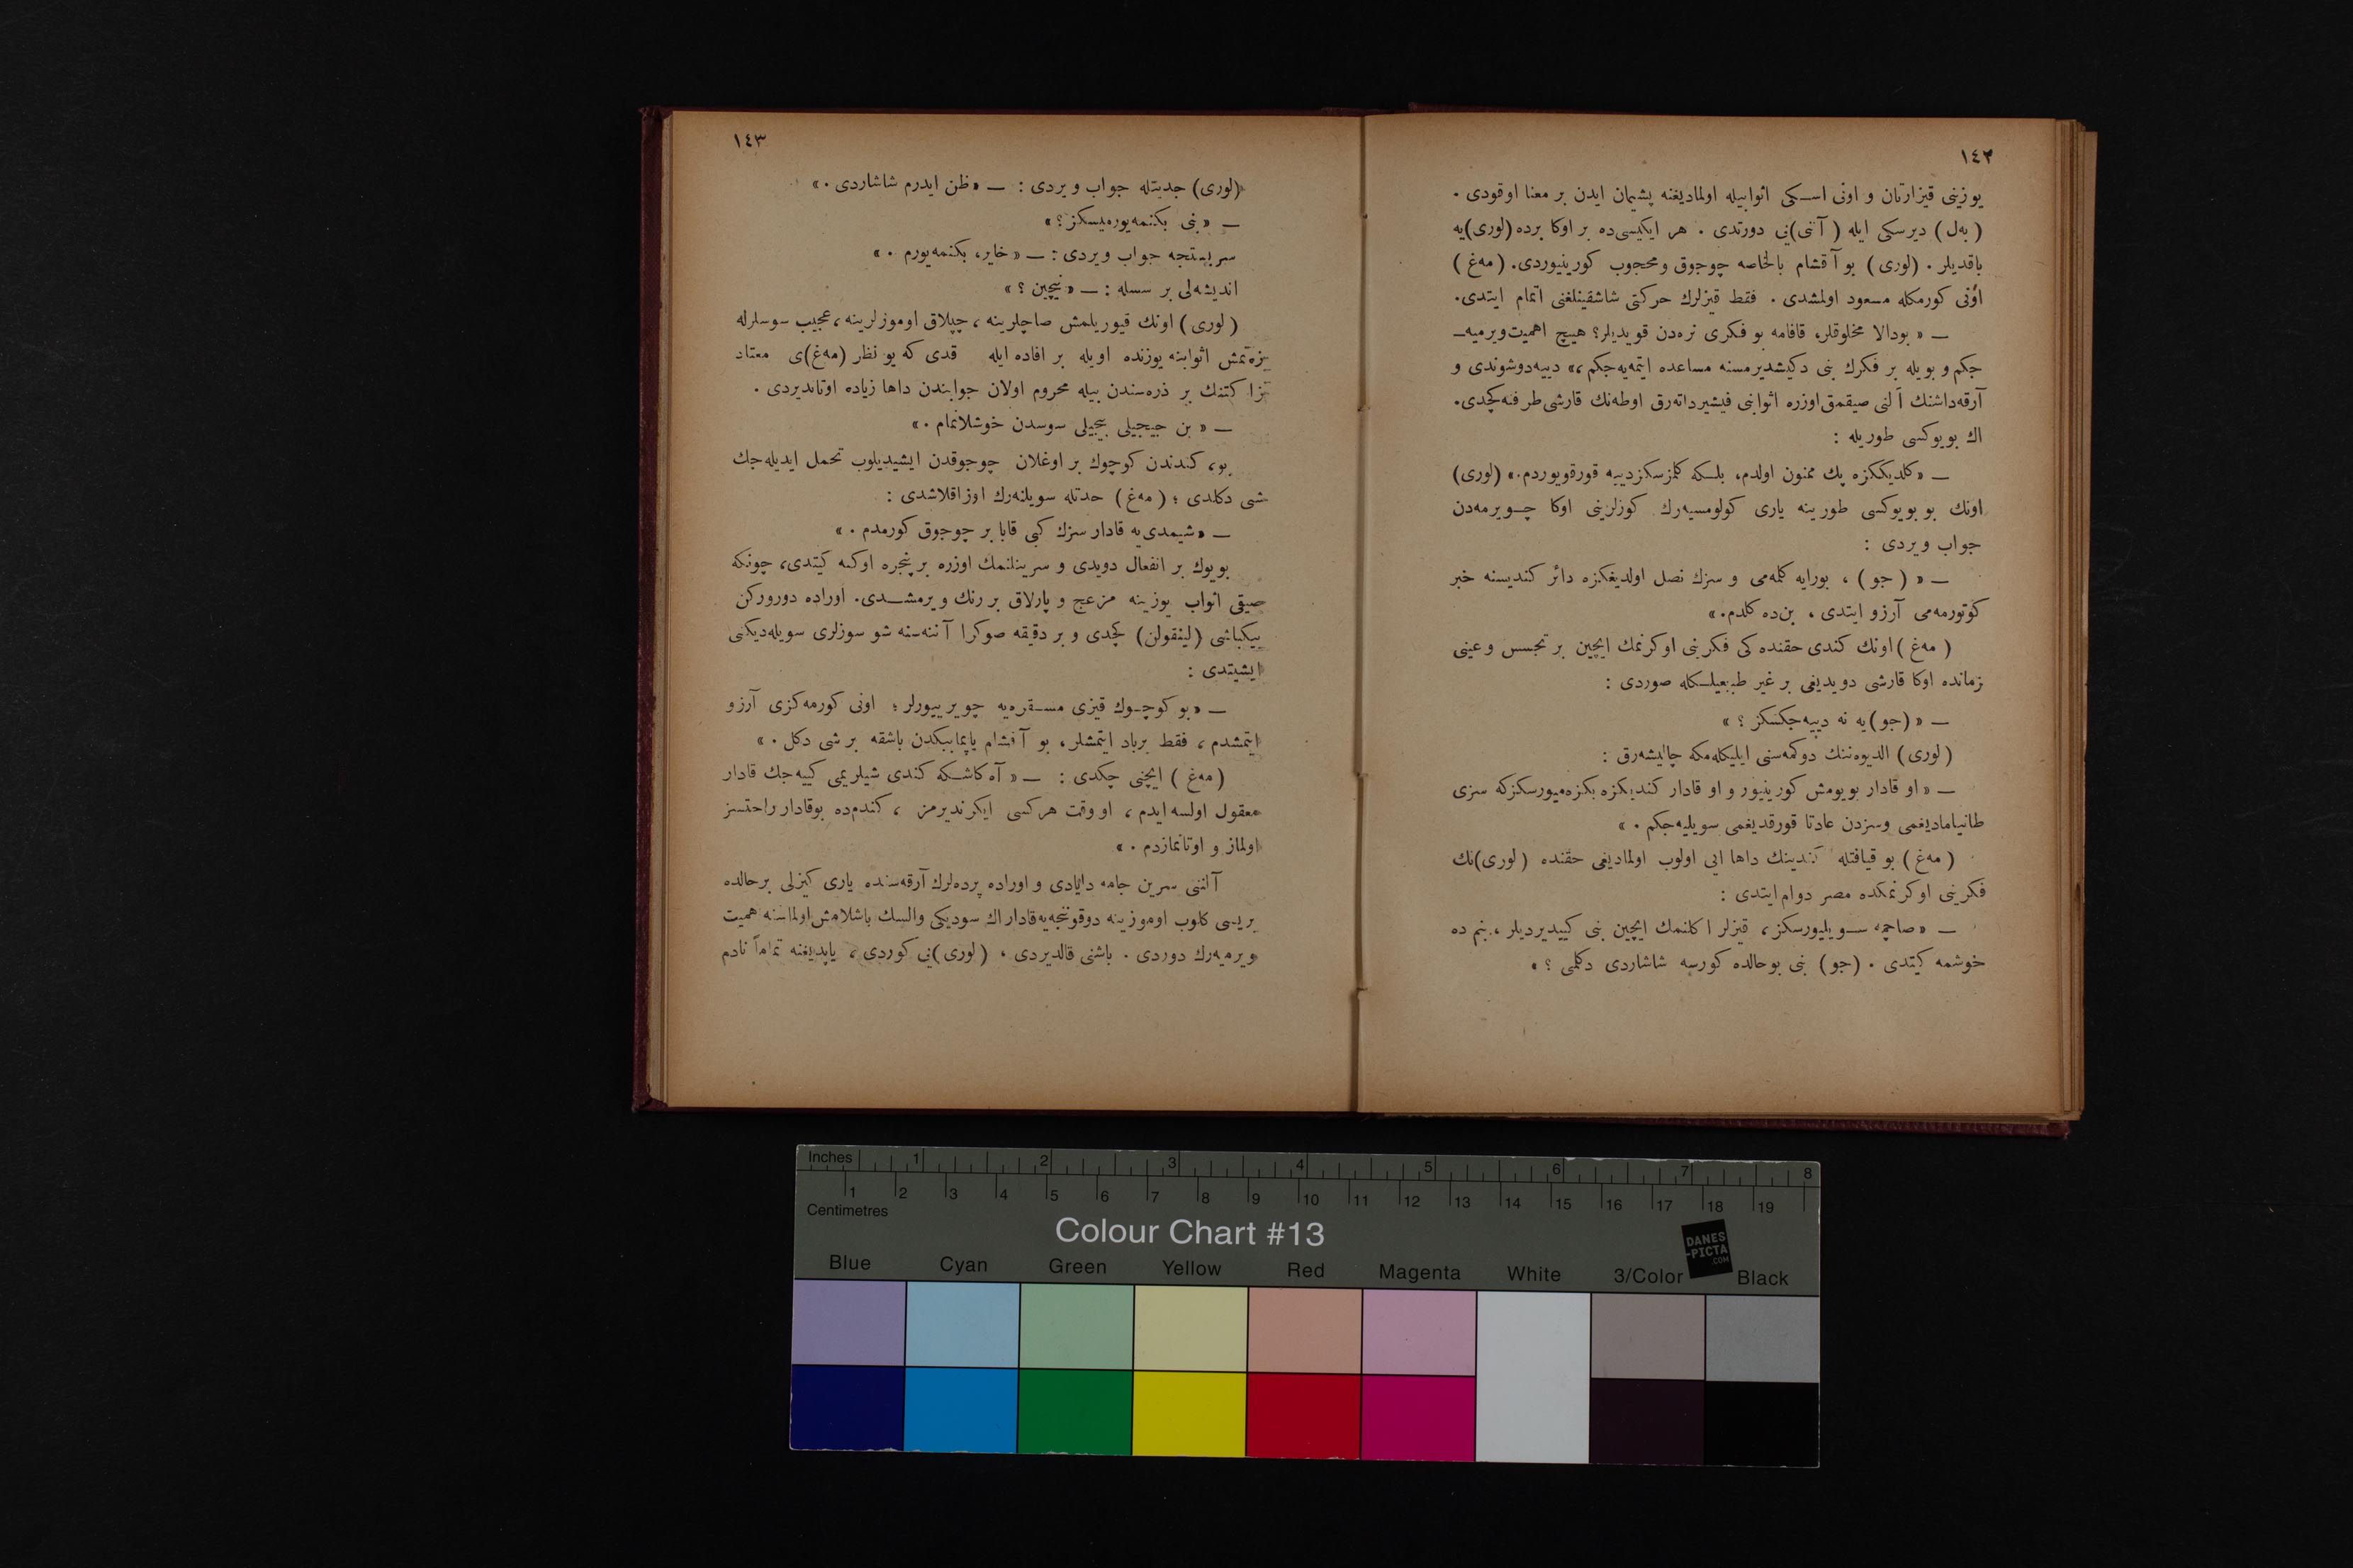 ١٤٢
يوزينى قيزارتان و اونى اسكى اثوابيله اولماديغنه پشيمان ايدن بر معنا اوقودى .
( به‌ل ) ديرسكى ايله ( آننى)نى دورتدى . هر ايكيسى‌ده بر اوكا برده (لورى)يه
باقديلر . (لورى ) بو آقشام بالخاصه چوجوق ومحجوب كورينيوردى. ( مه‌غ )
اونى كورمكله مسعود اولمشدى . فقط قيزلرك حركتى شاشقينلغنى اتمام ايتدى.
— « بودالا مخلوقلر، قافامه بو فكرى نره‌دن قويديلر؟ هيچ اهميت ويرميه‌ـ
جكم و بويله بر فكرك بنى دكيشديرمسنه مساعده ايتمه‌يه‌جكم ،» دييه‌دوشوندى و
آرقه‌داشنك ألنى صيقمق اوزره اثوابنى فيشيرداته‌رق اوطه‌نك قارشى طرفنه كچدى.
اك بويوكسى طوريله :
— «كلديككزه پك ممنون اولدم، بلكه كلزسكزدييه قورقويوردم.» (لورى)
اونك بو بويوكسى طورينه يارى كولومسيه‌رك كوزلرينى اوكا چويرمه‌دن
جواب ويردى :
— « ( جو ) ، بورايه كلمه‌مى و سزك نصل اولديغكزه دائر كنديسنه خبر
كوتورمه‌مى آرزو ايتدى ، بن‌ده كلدم.»
( مه‌غ ) اونك كندى حقنده كى فكرينى اوكرنمك ايچين بر تجسس و عينى
زمانده اوكا قارشى دويديغى بر غير طبيعيلكله صوردى :
— « (جو)يه نه دييه‌جكسكز ؟ »
(لورى ) الديوه‌ننك دوكمه‌سنى ايليكله‌مكه چاليشه‌رق :
— « او قادار بويومش كورينيور و او قادار كنديكزه بكزه‌ميورسكزكه سزى
طانياماديغمى وسزدن عادتا قورقديغمى سويليه‌جكم . »
( مه‌غ ) بو قيافتله كندينك داها ايى اولوب اولماديغى حقنده ( لورى)نك
فكرينى اوكرنمكده مصر دوام ايتدى :
— « صاچمه سويليورسكز ، قيزلر اكلنمك ايچين بنى كييديرديلر ، بنم ده
خوشمه كيتدى . (جو ) بنى بوحالده كورسه شاشاردى دكلمى ؟ »
١٤٣
(لورى) جديتله جواب ويردى : — « ظن ايدرم شاشاردى . »
— « بنى بكنمه‌يورميسكز ؟ »
سربستجه جواب ويردى : — « خاير، بكنمه‌يورم . »
انديشه‌لى بر سسله : — « نيچين ؟ »
( لورى ) اونك قيوريلمش صاچلرينه ، چپلاق اوموزلرينه ، عجيب سوسلرله
بزه‌نمش اثوابنه يوزنده اويله بر افاده ايله قدى كه بو نظر (مه‌غ)ى معتاد
نزاكتنك بر ذره‌سندن بيله محروم اولان جوابندن داها زياده اوتانديردى .
— « بن جيجيلى بيجيلى سوسدن خوشلانمام . »
بو، كندندن كوچوك بر اوغلان چوجوقدن ايشيديلوب تحمل ايديله‌جك
شى دكلدى ؛ ( مه‌غ ) حدتله سويلنه‌رك اوزاقلاشدى :
— « شيمدى‌يه قادار سزك كبى قابا بر چوجوق كورمدم . »
بويوك بر انفعال دويدى و سرينلنمك اوزره بر پنجره اوكنه كيتدى، چونكه
صيقى اثواب يوزينه مزعج و پارلاق بر رنك ويرمشدى. اوراده دوروركن
بيكباشى (لينقولن) كچدى و بر دقيقه صوكرا آننه‌سنه شو سوزلرى سويله‌ديكنى
ايشيتدى :
— « بو كوچوك قيزى مسقره‌يه چويريبورلر ؛ اونى كورمه‌كزى آرزو
ايتمشدم ، فقط برباد ايتمشلر ، بو آقشام ياپمابيكدن باشقه بر شى دكل . »
( مه‌غ ) ايچنى چكدى : — « آه كاشكه كندى شيلريمى كييه‌جك قادار
معقول اولسه ايدم ، او وقت هركسى ايكرنديرمز ، كندم‌ده بوقادار راحتسز
اولماز و اوتانمازدم . »
آلننى سرين جامه دايادى و اوراده پرده‌لرك آرقه‌سنده يارى كيزلى برحالده
بريسى كلوب اوموزينه دوقونجه‌يه‌قادار اك سوديكى والسك باشلامش اولماسنه اهميت
ويرميه‌رك دوردى . باشنى قالديردى ، (لورى)نى كوردى ، ياپديغنه تماماً نادم
Inches 1 2 3 4 5 6 7 8
1 2 3 4 5 6 7 8 9 10 11 12 13 14 15 16 17 18 19
Centimetres
Colour Chart #13
DANES
-PICTA
.COM
Blue Cyan Green Yellow Red Magenta White 3/Color Black